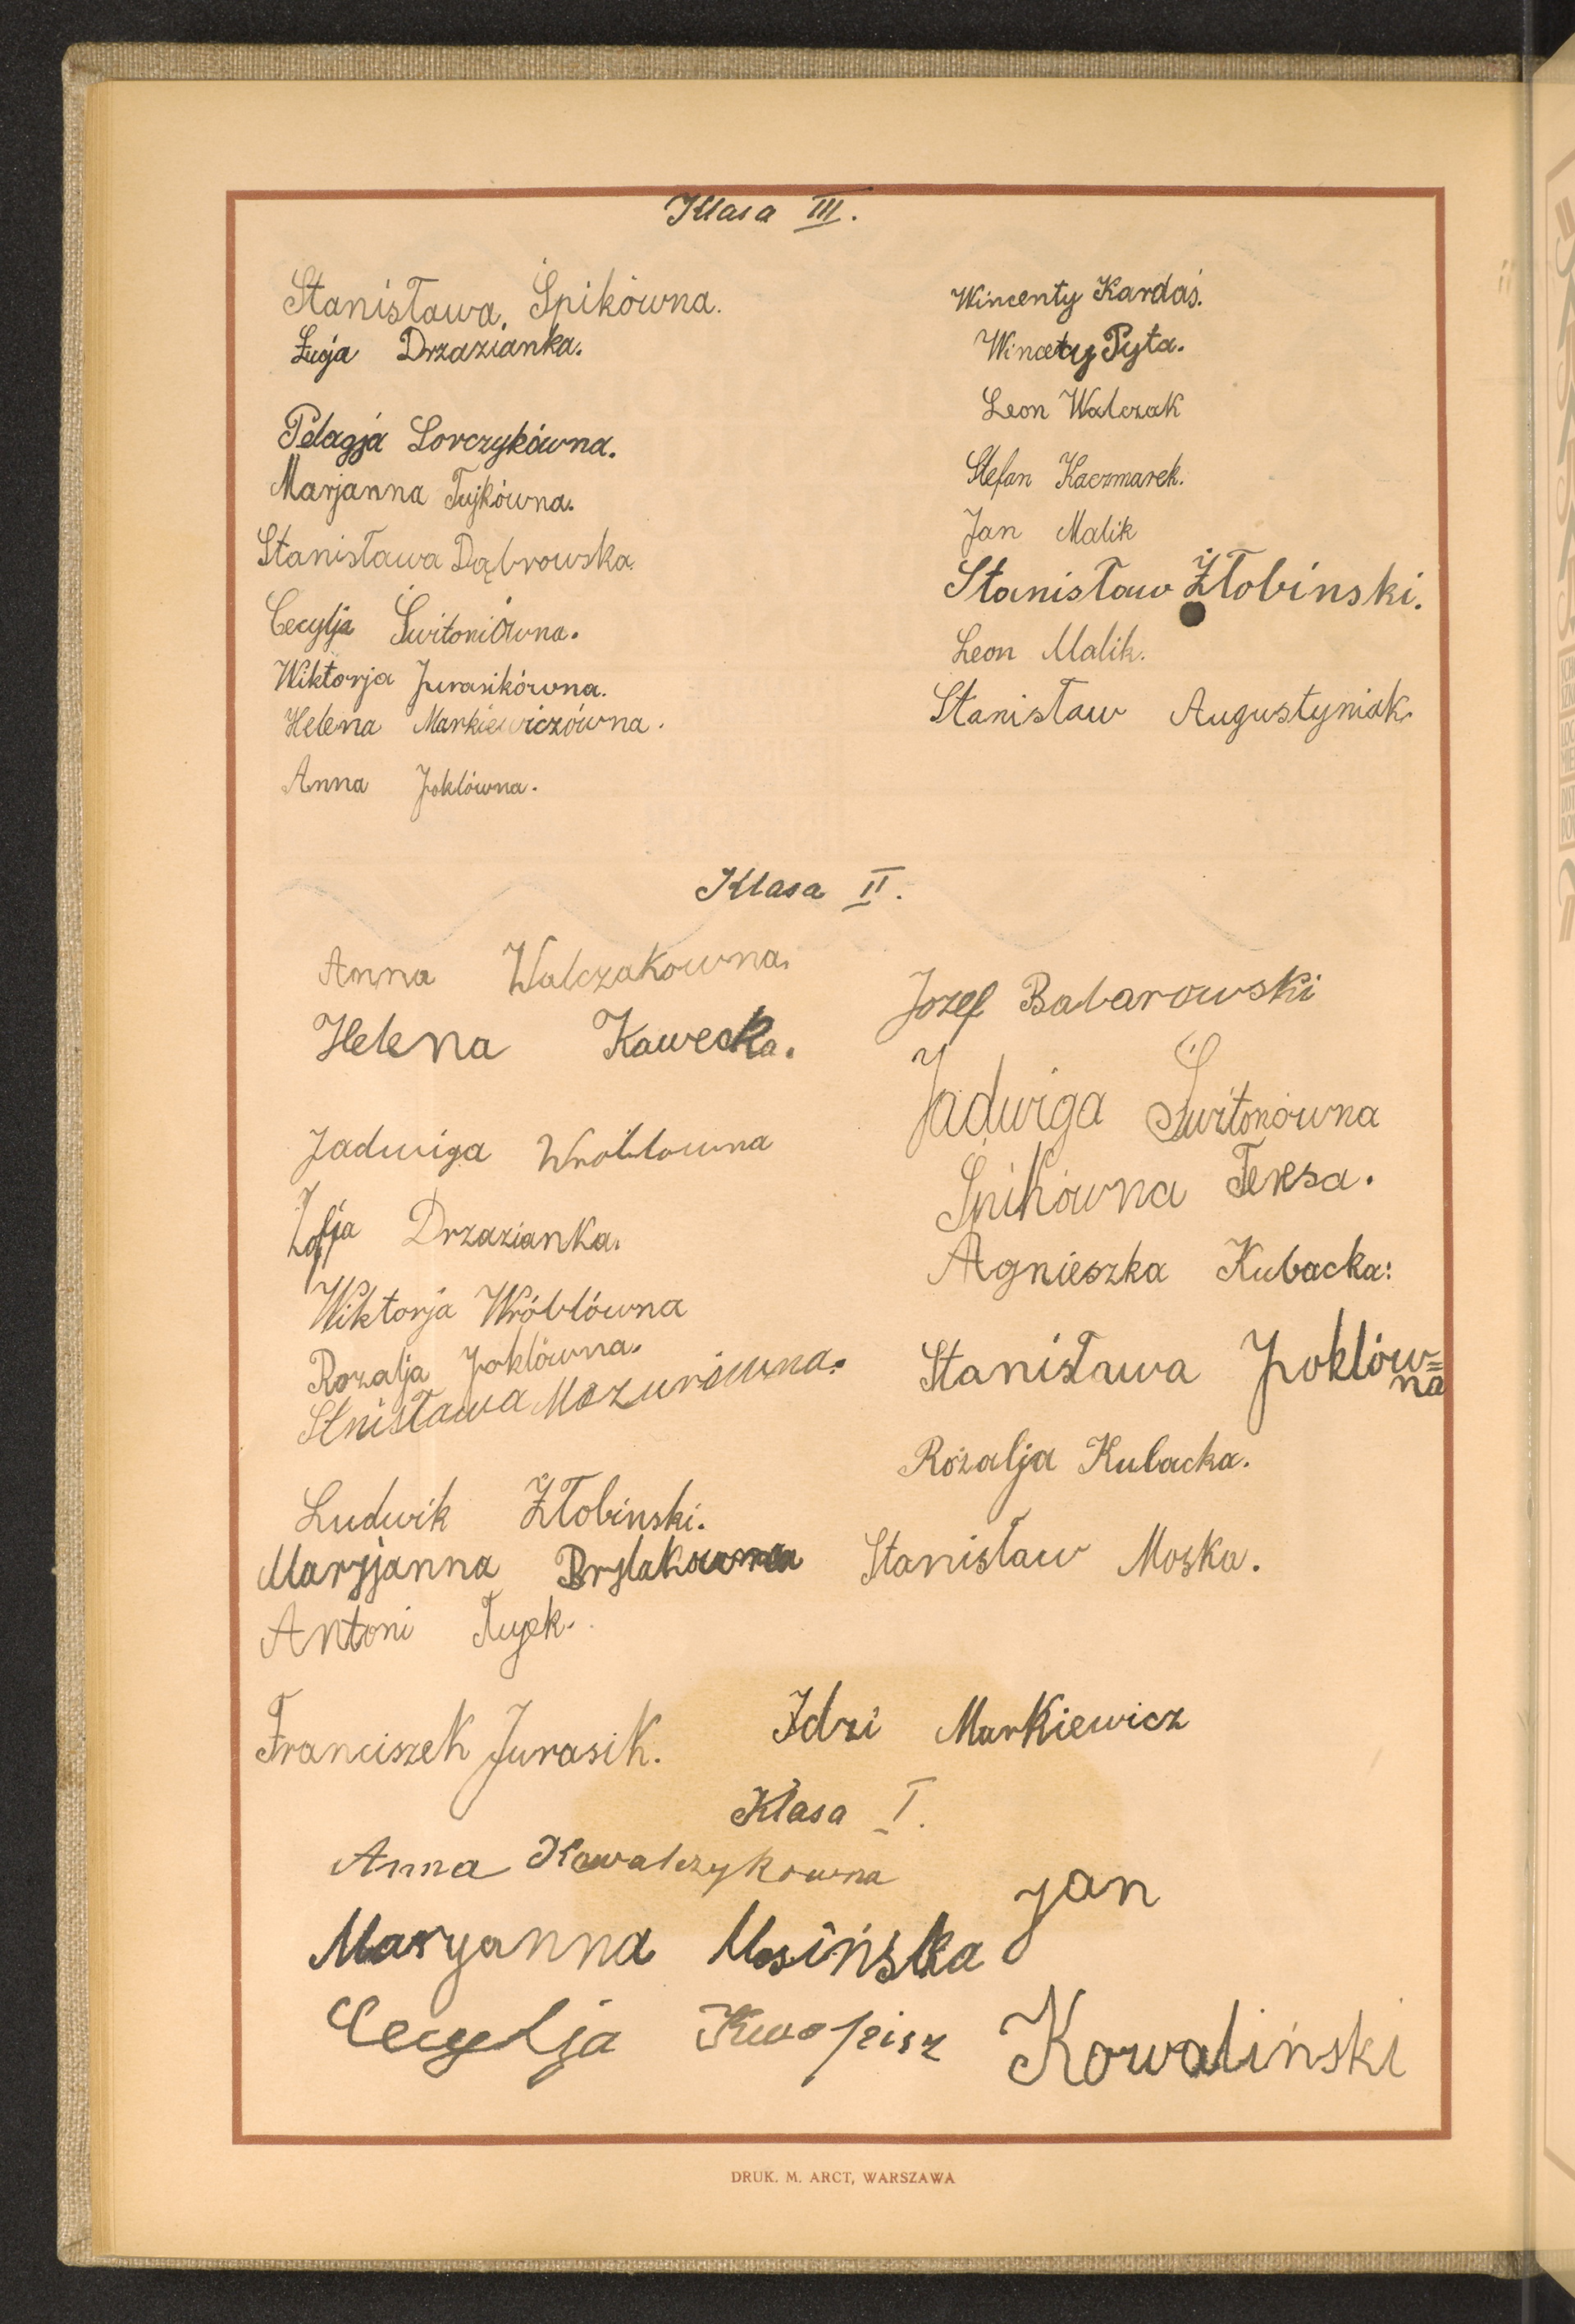 Klasa III.
Stanisława, Śpikówna.
Łucja Drzazianka.
Pelagja Lorczykówna.
Marjanna Tujkówna.
Stanisława Dąbrowska.
Cecylja Świtoniówna.
Wiktorja Jurasikówna.
Helena Markiewiczówna.
Anna Joklówna.
Wincenty Kardaś.
Wincety Pyta.
Leon Walczak
Stefan Kaczmarek.
Jan Malik
Stanisław Żłobinski.
Leon Malik.
Stanisław Augustyniak.
Klasa II.
Anna Walczakowna.
Helena Kawecka.
Jadwiga Wroblowna
Zofja Drzazianka.
Wiktorja Wróblówna
Rozalja Joklówna.
Stnisława Mazurówna.
Ludwik Żłobinski.
Maryjanna
Antoni Tujek.
Franciszek Jurasik.
Jozef Babarowski
Jadwiga Świtonówna
Śpikówna Teresa.
Agnieszka Kubacka:
Stanisława Joklów=
na
Rozalja Kubacka.
Stanisław Moska.
Idzi Markiewicz
Klasa I.
Anna Kowalczykowna
Maryanna Mosińska
Cecylja Kwapisz
Jan
Kowaliński
DRUK. M. ARCT, WARSZAWA